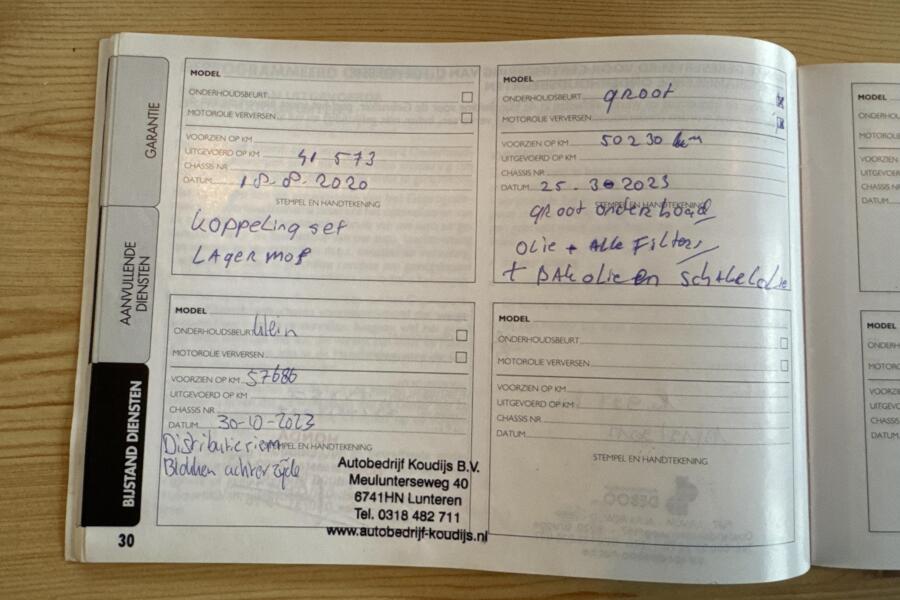 GARANTIE
AANVULLENDE
DIENSTEN
BIJSTAND DIENSTEN
30
MODEL
ONDERHOUDSBEURT
MOTOROLIE VERVERSEN
VOORZIEN OP KM
UITGEVOERD OP KM 41 573
CHASSIS NR
DATUM 18-08-2020
STEMPEL EN HANDTEKENING
Koppeling set
LAgermof
MODEL
ONDERHOUDSBEURT groot
MOTOROLIE VERVERSEN
VOORZIEN OP KM 50230 km
UITGEVOERD OP KM
CHASSIS NR
DATUM 25-3-2023
STEMPEL EN HANDTEKENING
groot onderhoud
OLIE + ALLE Filters
+ BAK olie en
MODEL
ONDERHOUDSBEURT klein
MOTOROLIE VERVERSEN
VOORZIEN OP KM 57686
UITGEVOERD OP KM
CHASSIS NR
DATUM 30-10-2023
STEMPEL EN HANDTEKENING
Distributieriem
Blokken achterzijde
Autobedrijf Koudijs B.V.
Meulunterseweg 40
6741HN Lunteren
Tel. 0318 482 711
www.autobedrijf-koudijs.nl
MODEL
ONDERHOUDSBEURT
MOTOROLIE VERVERSEN
VOORZIEN OP KM
UITGEVOERD OP KM
CHASSIS NR
DATUM
STEMPEL EN HANDTEKENING
MODEL
ONDERH
MOTORO
VOORZIEN
UITGEVO
CHASSIS
DATUM
MODEL
ONDERH
MOTORO
VOORZIEN
UITGEVO
CHASSIS N
DATUM